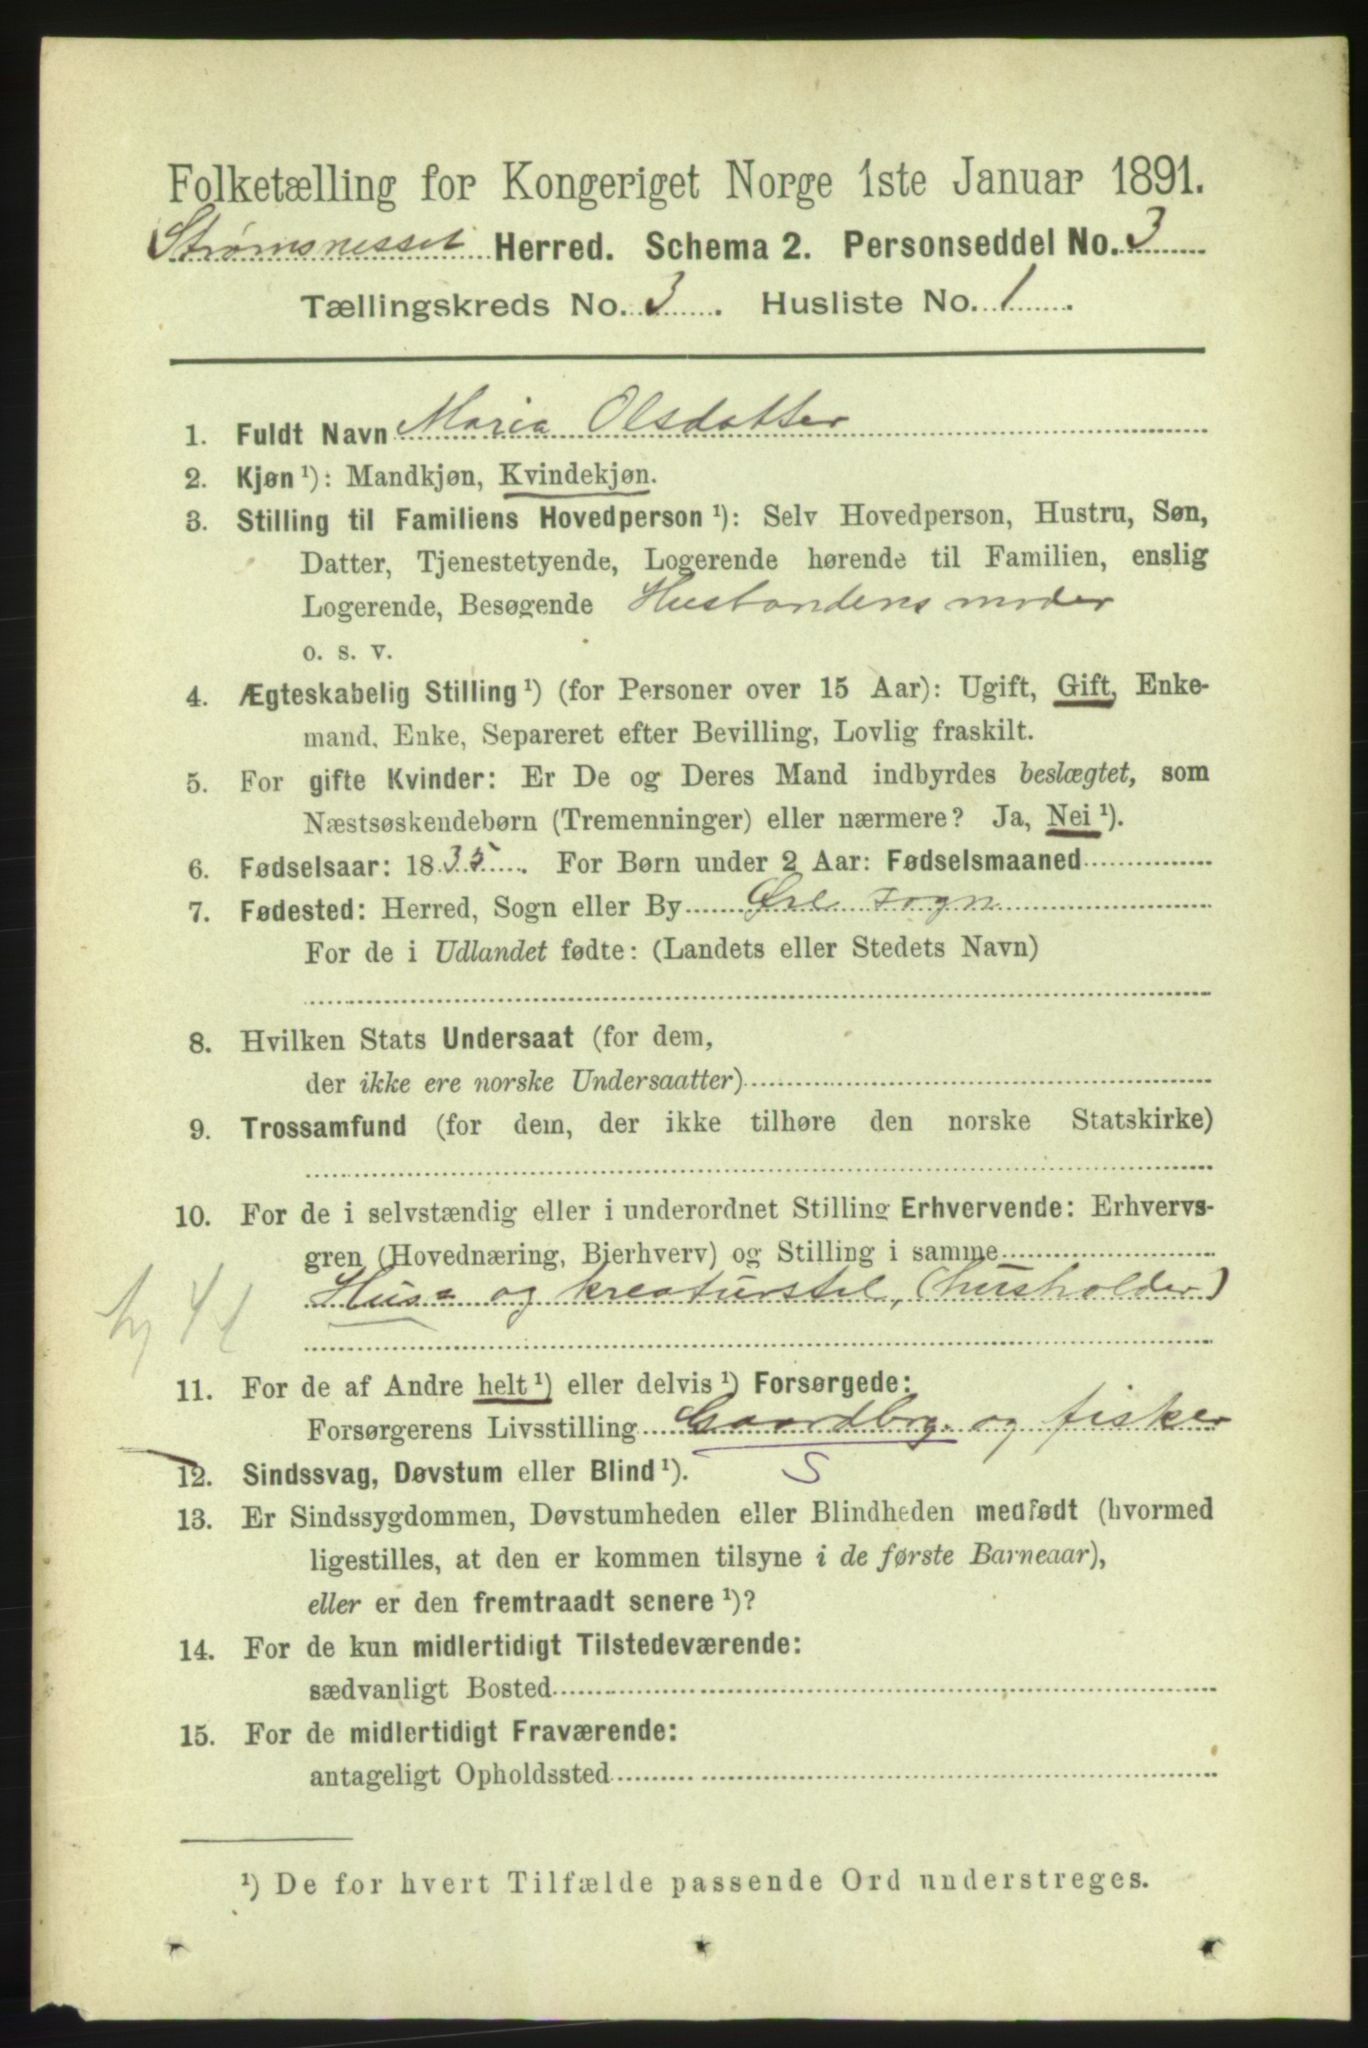 Folketælling for Kongeriget Norge 1ste Januar 1891.
Strømsnesset Herred. Schema 2. Personseddel No. 3
Tællingskreds No. 3. Husliste No. 1.
1. Fuldt Navn Maria Olsdatter
2. Kjøn ¹): Mandkjøn, Kvindekjøn.
3. Stilling til Familiens Hovedperson ¹): Selv Hovedperson, Hustru, Søn,
Datter, Tjenestetyende, Logerende hørende til Familien, enslig
Logerende, Besøgende Husbondens moder
o. s. v.
4. Ægteskabelig Stilling ¹) (for Personer over 15 Aar): Ugift, Gift, Enke-
mand, Enke, Separeret efter Bevilling, Lovlig fraskilt.
5. For gifte Kvinder: Er De og Deres Mand indbyrdes beslægtet, som
Næstsøskendebørn (Tremenninger) eller nærmere? Ja, Nei ¹).
6. Fødselsaar: 1835. For Børn under 2 Aar: Fødselsmaaned
7. Fødested: Herred, Sogn eller By Øre sogn
For de i Udlandet fødte: (Landets eller Stedets Navn)
8. Hvilken Stats Undersaat (for dem,
der ikke ere norske Undersaatter)
9. Trossamfund (for dem, der ikke tilhøre den norske Statskirke)
10. For de i selvstændig eller i underordnet Stilling Erhvervende: Erhvervs-
gren (Hovednæring, Bierhverv) og Stilling i samme
Hus= og kreaturstel, (husholder)
11. For de af Andre helt ¹) eller delvis ¹) Forsørgede:
Forsørgerens Livsstilling Gaardbrg. og fisker
12. Sindssvag, Døvstum eller Blind ¹). S
13. Er Sindssygdommen, Døvstumheden eller Blindheden medfødt (hvormed
ligestilles, at den er kommen tilsyne i de første Barneaar),
eller er den fremtraadt senere ¹)?
14. For de kun midlertidigt Tilstedeværende:
sædvanligt Bosted
15. For de midlertidigt Fraværende:
antageligt Opholdssted
¹) De for hvert Tilfælde passende Ord understreges.